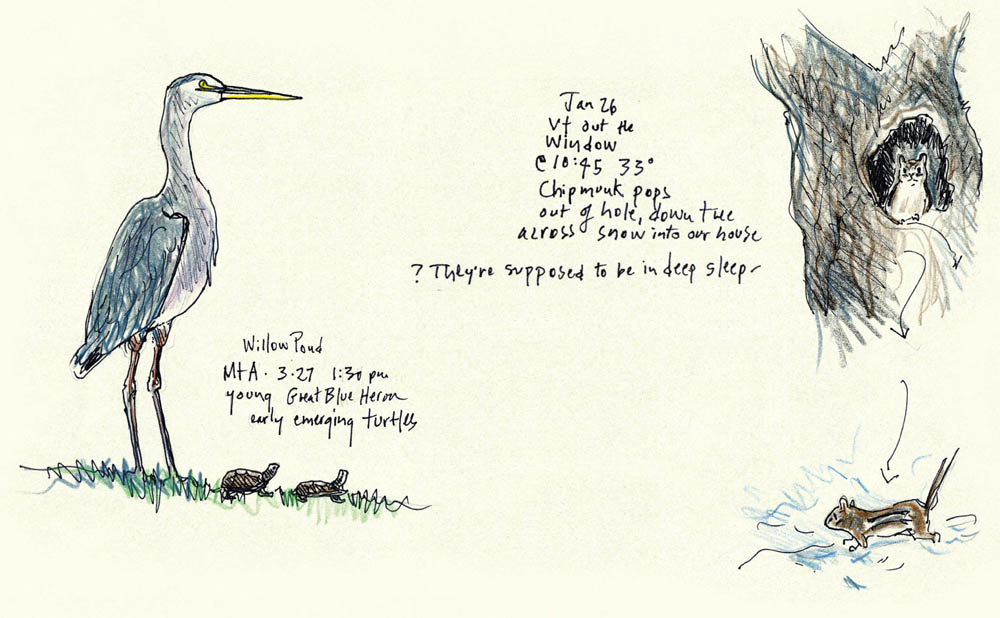 Jan 26
Vt out the
Window
@ 10:45 33°
Chipmunk pops
out of hole, down tree
across snow into our house
? They're supposed to be in deep sleep-
Willow Pond
Mt A. 3.27 1:30 pm
young Great Blue Heron
early emerging turtles